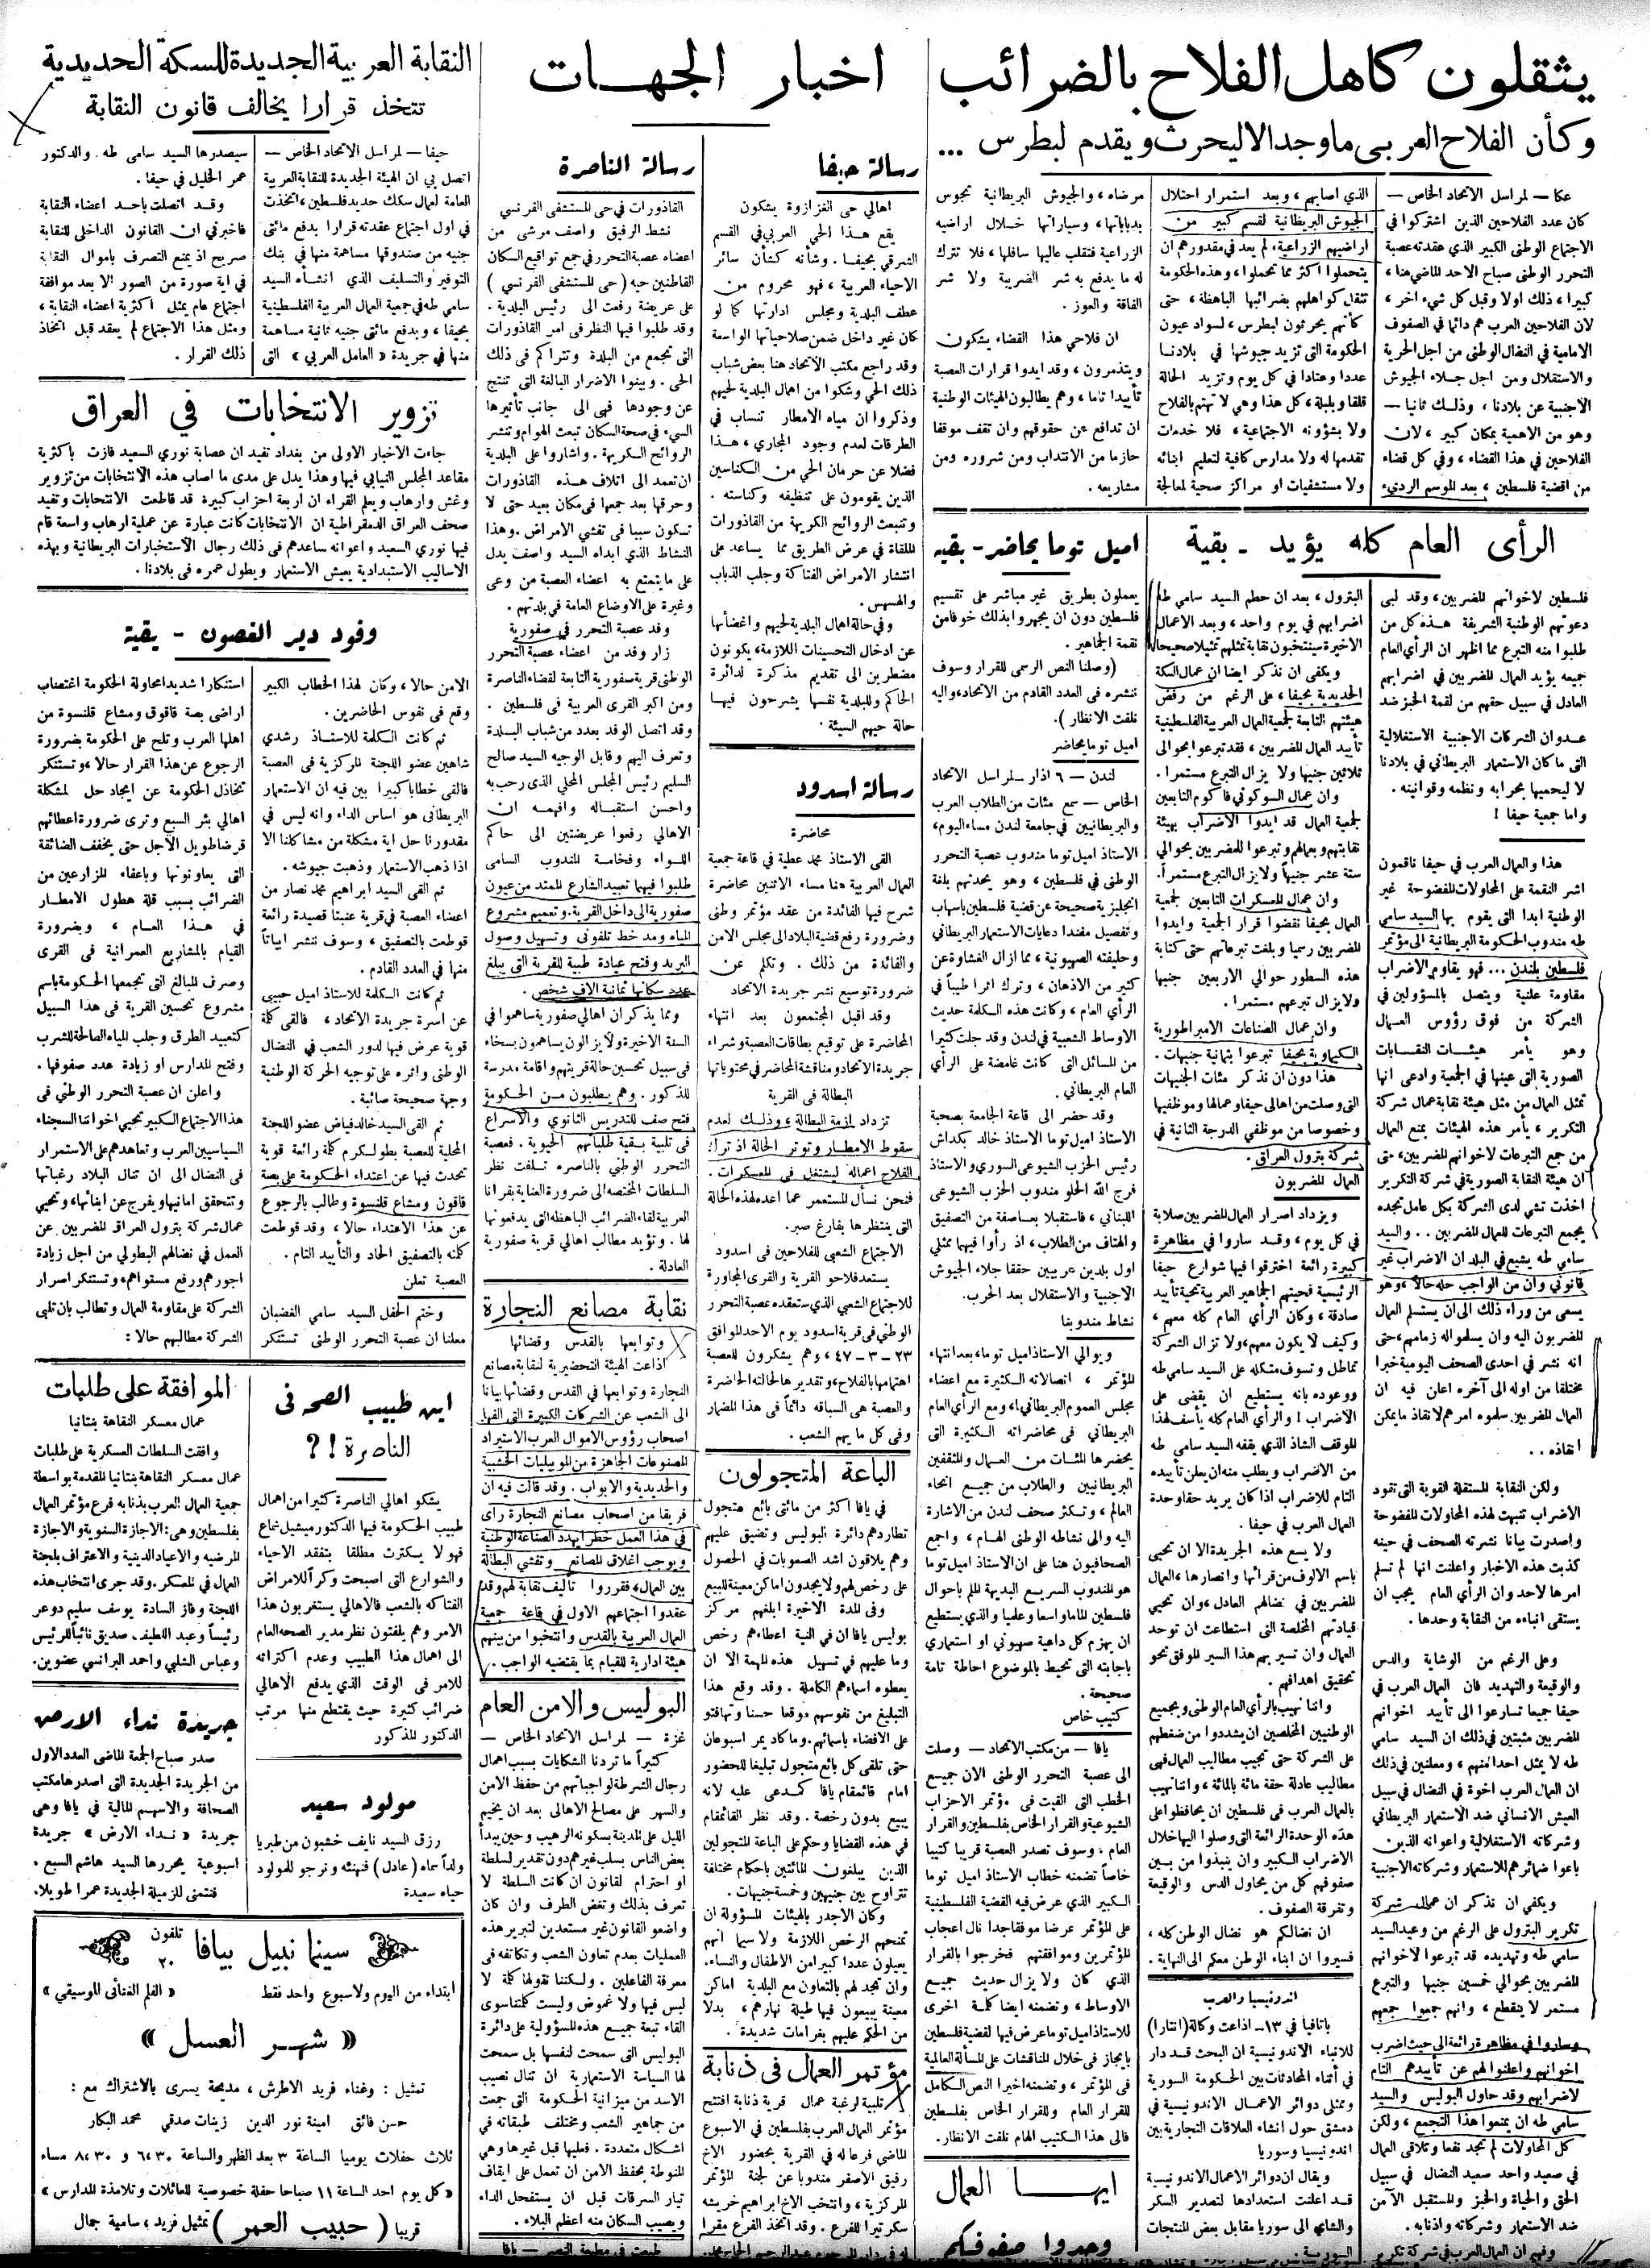 يثقلون كاهل الفلاح بالضرائب
وكأن الفلاح العربي ما وجد الا ليحرث ويقدم لبطرس ...
عكا — لمراسل الاتحاد الخاص —
كان عدد الفلاحين الذين اشتركوا في
الاجتماع الوطني الكبير الذي عقدته عصبة
التحرر الوطني صباح الاحد الماضي هنا،
كبيرا، ذلك اولا وقبل كل شيء اخر،
لان الفلاحين العرب هم دائما في الصفوف
الامامية في النضال الوطني من اجل الحرية
والاستقلال ومن اجل جلاء الجيوش
الاجنبية عن بلادنا، وذلك ثانيا —
وهو من الاهمية بمكان كبير، لان
الفلاحين في هذا القضاء، وفي كل قضاء
من اقضية فلسطين، بعد الموسم الرديء
الذي اصابهم، وبعد استمرار احتلال
الجيوش البريطانية لقسم كبير من
اراضيهم الزراعية، لم يعد في مقدورهم ان
يتحملوا اكثر مما تحملوا، وهذه الحكومة
تثقل كواهلهم بضرائبها الباهظة، حتى
كأنهم يحرثون لبطرس، لسواد عيون
الحكومة التي تزيد جيوشها في بلادنا
عددا وعتادا في كل يوم وتزيد الحالة
قلقا وبلبلة، كل هذا وهي لا تهتم بالفلاح
ولا بشؤونه الاجتماعية، فلا خدمات
تقدمها له ولا مدارس كافية لتعليم ابنائه
ولا مستشفيات او مراكز صحية لمعالجة
مرضاه، والجيوش البريطانية تجوس
بدباباتها، وسياراتها خلال اراضيه
الزراعية فتقلب عاليها سافلها، فلا تترك
له ما يدفع به شر الضريبة ولا شر
الفاقة والعوز.
ان فلاحي هذا القضاء يشكون
ويتذمرون، وقد ايدوا قرارات العصبة
تأييدا تاما، وهم يطالبون الهيئات الوطنية
ان تدافع عن حقوقهم وان تقف موقفا
حازما من الانتداب ومن شروره ومن
مشاريعه.
الرأى العام كله يؤيد - بقية
فلسطين لاخوانهم المضربين، وقد لبى
دعوتهم الوطنية الشريفة هذه كل من
طلبوا منه التبرع مما اظهر ان الرأي العام
جميعه يؤيد العمال المضربين في اضرابهم
العادل في سبيل حقهم من لقمة الخبز ضد
عدوان الشركات الاجنبية الاستغلالية
التي ما كان الاستعمار البريطاني في بلادنا
لا ليحميها بحرابه ونظمه وقوانينه.
واما جمعية حيفا !
هذا والعمال العرب في حيفا ناقمون
اشر النقمة على المحاولات المفضوحة غير
الوطنية ابدا التي يقوم بها السيد سامي
طه مندوب الحكومة البريطانية الى مؤتمر
فلسطين بلندن ... فهو يقاوم الاضراب
مقاومة علنية ويتصل بالمسؤولين في
الشركة من فوق رؤوس العمال
وهو يأمر هيئات النقابات
الصورية التي عينها في الجمعية وادعى انها
تمثل العمال من مثل هيئة نقابة عمال شركة
التكرير، يأمر هذه الهيئات بمنع العمال
من جمع التبرعات لاخوانهم المضربين، حتى
ان هيئة النقابة الصورية في شركة التكرير
اخذت تشي لدى الشركة بكل عامل تجده
يجمع التبرعات للعمال المضربين .. والسيد
سامي طه يشيع في البلد ان الاضراب غير
قانوني وان من الواجب حله حالا، وهو
يسعى من وراء ذلك الى ان يستسلم العمال
المضربون اليه وان يسلموا له زمامهم، حتى
انه نشر في احدى الصحف اليومية خبرا
مختلقا من اوله الى آخره اعلن فيه ان
العمال المضربين سلموه امرهم لانقاذ ما يمكن
انقاذه ..
ولكن النقابة المستقلة القوية التي تقود
الاضراب تنبهت لهذه المحاولات المفضوحة
واصدرت بيانا نشرته الصحف في حينه
كذبت هذه الاخبار واعلنت انها لم تسلم
امرها لاحد وان الرأي العام يجب ان
يستقي انباءه من النقابة وحدها.
وعلى الرغم من الوشاية والدس
والوقيعة والتهديد فان العمال العرب في
حيفا جميعا تسارعوا الى تأييد اخوانهم
المضربين مثبتين في ذلك ان السيد سامي
طه لا يمثل احدا منهم، ومعلنين في ذلك
ان العمال العرب اخوة في النضال في سبيل
العيش الانساني ضد الاستعمار البريطاني
وشركاته الاستغلالية واعوانه الذين
باعوا ضمائرهم للاستعمار وشركاته الاجنبية
ويكفي ان نذكر ان عمال شركة
تكرير البترول على الرغم من وعيد السيد
سامي طه وتهديده قد تبرعوا لاخوانهم
المضربين بحوالي خمسين جنيها والتبرع
مستمر لا ينقطع، وانهم جمعوا جمعهم
وساروا في مظاهرة رائعة الى حيث اضرب
اخوانهم واعلنوا لهم عن تأييدهم التام
لاضرابهم وقد حاول البوليس والسيد
سامي طه ان يمنعوا هذا التجمع، ولكن
كل المحاولات لم تجد نفعا وتلاقى العمال
في صعيد واحد صعيد النضال في سبيل
الحق والحياة والخبز والمستقبل الآمن
ضد الاستعمار وشركاته واذنابه.
وفهم ان العمال العرب في شركة تكرير
البترول، بعد ان حطم السيد سامي طه
اضرابهم في يوم واحد، وبعد الاعمال
الاخيرة سينتخبون نقابة تمثلهم تمثيلا صحيحا
ويكفي ان نذكر ايضا ان عمال السكة
الحديدية بحيفا، على الرغم من رفض
هيئتهم التابعة لجمعية العمال العربية الفلسطينية
تأييد العمال المضربين، فقد تبرعوا بحوالي
ثلاثين جنيها ولا يزال التبرع مستمرا.
وان عمال السوكوني فاكوم التابعين
لجمعية العمال قد ايدوا الاضراب بهيئة
نقابتهم وبعمالهم وتبرعوا للمضربين بحوالي
ستة عشر جنيها ولا يزال التبرع مستمرا.
وان عمال المعسكرات التابعين لجمعية
العمال بحيفا نقضوا قرار الجمعية وايدوا
المضربين رسميا وبلغت تبرعاتهم حتى كتابة
هذه السطور حوالي الاربعين جنيها
ولا يزال تبرعهم مستمرا.
وان عمال الصناعات الامبراطورية
الكيماوية بحيفا تبرعوا بثمانية جنيهات.
هذا دون ان نذكر مئات الجنيهات
التي وصلت من اهالي حيفا وعمالها وموظفيها
وخصوصا من موظفي الدرجة الثانية في
شركة بترول العراق.
العمال المضربون
ويزداد اصرار العمال المضربين صلابة
في كل يوم، وقد ساروا في مظاهرة
كبيرة رائعة اخترقوا فيها شوارع حيفا
الرئيسية فحيتهم الجماهير العربية تحية تأييد
صادقة، وكان الرأي العام كله معهم،
وكيف لا يكون معهم، ولا تزال الشركة
تماطل وتسوف متكلة على السيد سامي طه
ووعوده بانه يستطيع ان يقضي على
الاضراب ! والرأي العام كله يأسف لهذا
الموقف الشاذ الذي يقفه السيد سامي طه
من الاضراب ويطلب منه ان يعلن تأييده
التام للاضراب اذا كان يريد حقا وحدة
العمال العرب في حيفا.
ولا يسع هذه الجريدة الا ان تحيي
باسم الالوف من قرائها وانصارها، العمال
المضربين في نضالهم العادل، وان تحيي
قيادتهم المخلصة التي استطاعت ان توحد
العمال وان تسير بهم هذا السير الموفق نحو
تحقيق اهدافهم.
واننا نهيب بالرأي العام الوطني وبجميع
الوطنيين المخلصين ان يشددوا من ضغطهم
على الشركة حتى تجيب مطاليب العمال فهي
مطاليب عادلة حقة مائة بالمائة، واننا نهيب
بالعمال العرب في فلسطين ان يحافظوا على
هذه الوحدة الرائعة التي وصلوا اليها خلال
الاضراب الكبير وان ينبذوا من بين
صفوفهم كل من يحاول الدس والوقيعة
وتفرقة الصفوف.
ان نضالكم هو نضال الوطن كله،
فسيروا ان ابناء الوطن معكم الى النهاية.
اندونيسيا والعرب
باتافيا في ١٣ - اذاعت وكالة (انتارا)
للانباء الاندونيسية ان البحث قد دار
في أثناء المحادثات بين الحكومة السورية
وممثلي دوائر الاعمال الاندونيسية في
دمشق حول انشاء العلاقات التجارية بين
اندونيسيا وسوريا
ويقال ان دوائر الاعمال الاندونيسية
قد اعلنت استعدادها لتصدير السكر
والشاي الى سوريا مقابل بعض المنتجات
السورية.
اميل توما يحاضر - بقيه
يعملون بطريق غير مباشر على تقسيم
فلسطين دون ان يجهروا بذلك خوفا من
نقمة الجماهير.
(وصلنا النص الرسمي للقرار وسوف
ننشره في العدد القادم من الاتحاد، واليه
نلفت الانظار).
اميل توما يحاضر
لندن — ٦ اذار — لمراسل الاتحاد
الخاص — سمع مئات من الطلاب العرب
والبريطانيين في جامعة لندن مساء اليوم،
الاستاذ اميل توما مندوب عصبة التحرر
الوطني في فلسطين، وهو يحدثهم بلغة
انجليزية صحيحة عن قضية فلسطين باسهاب
وتفصيل مفندا دعايات الاستعمار البريطاني
وحليفته الصهيونية، مما ازال الغشاوة عن
كثير من الاذهان، وترك اثرا طيبا في
الرأي العام، وكانت هذه الكلمة حديث
الاوساط الشعبية في لندن وقد جلت كثيرا
من المسائل التي كانت غامضة على الرأي
العام البريطاني.
وقد حضر الى قاعة الجامعة بصحبة
الاستاذ اميل توما الاستاذ خالد بكداش
رئيس الحزب الشيوعي السوري والاستاذ
فرج الله الحلو مندوب الحزب الشيوعي
اللبناني، فاستقبلا بعاصفة من التصفيق
والهتاف من الطلاب، اذ رأوا فيهما ممثلي
اول بلدين عربيين حققا جلاء الجيوش
الاجنبية والاستقلال بعد الحرب.
نشاط مندوبنا
ويوالي الاستاذ اميل توما، بعد انتهاء
المؤتمر، اتصالاته الكثيرة مع اعضاء
مجلس العموم البريطاني، ومع الرأي العام
البريطاني في محاضراته الكثيرة التي
يحضرها المئات من العمال والمثقفين
البريطانيين والطلاب من جميع انحاء
العالم، وتكثر صحف لندن من الاشارة
اليه والى نشاطه الوطني الهام، واجمع
الصحافيون هنا على ان الاستاذ اميل توما
هو المندوب السريع البديهة الملم باحوال
فلسطين الماما واسعا وعلميا والذي يستطيع
ان يهزم كل داعية صهيوني او استعماري
باجابته التي تحيط بالموضوع احاطة تامة
صحيحة.
كتيب خاص
يافا — من مكتب الاتحاد — وصلت
الى عصبة التحرر الوطني الان جميع
الخطب التي القيت في مؤتمر الاحزاب
الشيوعية والقرار الخاص بفلسطين والقرار
العام. وسوف تصدر العصبة قريبا كتيبا
خاصا تضمنه خطاب الاستاذ اميل توما
الكبير الذي عرض فيه القضية الفلسطينية
على المؤتمر عرضا موفقا جدا نال اعجاب
المؤتمرين وموافقتهم فخرجوا بالقرار
الذي كان ولا يزال حديث جميع
الاوساط، وتضمنه ايضا كلمة اخرى
للاستاذ اميل توما عرض فيها لقضية فلسطين
بايجاز في خلال المناقشات على المسألة العالمية
في المؤتمر، وتضمنه اخيرا النص الكامل
للقرار العام وللقرار الخاص بفلسطين
فالى هذا الكتيب الهام نلفت الانظار.
ايها العمال
وحدوا صفوفكم
اخبار الجهات
رسالة حيفا
اهالي حي الغزازوة يشكون
يقع هذا الحي العربي في القسم
الشرقي بحيفا. وشأنه كشأن سائر
الاحياء العربية، فهو محروم من
عطف البلدية ومجلس ادارتها كما لو
كان غير داخل ضمن صلاحياتها الواسعة
وقد راجع مكتب الاتحاد هنا بعض شباب
ذلك الحي وشكوا من اهمال البلدية لحيهم
وذكروا ان مياه الامطار تنساب في
الطرقات لعدم وجود المجاري، هذا
فضلا عن حرمان الحي من الكناسين
الذين يقومون على تنظيفه وكناسته.
وتنبعث الروائح الكريهة من القاذورات
الملقاة في عرض الطريق مما يساعد على
انتشار الامراض الفتاكة وجلب الذباب
والهسهس.
وفي حالة اهمال البلدية لحيهم واغضائها
عن ادخال التحسينات اللازمة، يكونون
مضطرين الى تقديم مذكرة لدائرة
الحاكم وللبلدية نفسها يشرحون فيها
حالة حيهم السيئة.
رسالة اسدود
محاضرة
القى الاستاذ محمد عطية في قاعة جمعية
العمال العربية هنا مساء الاثنين محاضرة
شرح فيها الفائدة من عقد مؤتمر وطني
وضرورة رفع قضية البلاد الى مجلس الامن
والفائدة من ذلك. وتكلم عن
ضرورة توسيع نشر جريدة الاتحاد
وقد اقبل المجتمعون بعد انتهاء
المحاضرة على توقيع بطاقات العصبة وشراء
جريدة الاتحاد ومناقشة المحاضر في محتوياتها
البطالة في القرية
تزداد ازمة البطالة، وذلك لعدم
سقوط الامطار وتوتر الحالة اذ ترك
الفلاح اعماله ليشتغل في المعسكرات.
فنحن نسأل المستعمر عما اعده لهذه الحالة
التي ينتظرها بفارغ صبر.
الاجتماع الشعبي للفلاحين في اسدود
يستعد فلاحو القرية والقرى المجاورة
للاجتماع الشعبي الذي ستعقده عصبة التحرر
الوطني في قرية اسدود يوم الاحد الموافق
٢٣ - ٣ - ٤٧، وهم يشكرون للعصبة
اهتمامها بالفلاح، وتقديرها لحالته الحاضرة
والعصبة هي السباقه دائما في هذا المضمار
وفي كل ما يهم الشعب.
الباعة المتجولون
في يافا اكثر من مائتي بائع متجول
تطاردهم دائرة البوليس وتضيق عليهم
وهم يلاقون اشد الصعوبات في الحصول
على رخص لهم ولا يجدون اماكن معينة للبيع
وفي المدة الاخيرة ابلغهم مركز
بوليس يافا ان في النية اعطاءهم رخص
وما عليهم في تسهيل هذه المهمة الا ان
يعطوه اسماءهم الكاملة. وقد وقع هذا
التبليغ من نفوسهم موقعا حسنا وتهافتوا
على الافضاء باسمائهم. وما كاد يمر اسبوعان
حتى تلقى كل بائع متجول تبليغا للحضور
امام قائمقام يافا كمدعى عليه لانه
يبيع بدون رخصة. وقد نظر القائمقام
في هذه القضايا وحكم على الباعة المتجولين
الذين يبلغون المائتين باحكام مختلفة
تتراوح بين جنيهين وخمسة جنيهات.
وكان الاجدر بالهيئات المسؤولة ان
تمنحهم الرخص اللازمة ولا سيما انهم
يعيلون عددا كبيرا من الاطفال والنساء.
وان تجد لهم بالتعاون مع البلدية اماكن
معينة يبيعون فيها طيلة نهارهم، بدلا
من الحكم عليهم بغرامات شديدة.
مؤتمر العمال في ذنابة
تلبية لرغبة عمال قرية ذنابة افتتح
مؤتمر العمال العرب بفلسطين في الاسبوع
الماضي فرعا له في القرية بحضور الاخ
رفيق الاصفر مندوبا عن لجنة المؤتمر
المركزية، وانتخب الاخ ابراهيم خريشه
سكرتيرا للفرع. وقد اتخذ الفرع مقرا
رسالة الناصرة
القاذورات في حي المستشفى الفرنسي
نشط الرفيق واصف مرشي من
اعضاء عصبة التحرر في جمع تواقيع السكان
القاطنين حيه (حي المستشفى الفرنسي)
على عريضة رفعت الى رئيس البلدية.
وقد طلبوا فيها النظر في امر القاذورات
التي تجمع من البلدة وتتراكم في ذلك
الحي. وبينوا الاضرار البالغة التي تنتج
عن وجودها فهي الى جانب تأثيرها
السيء في صحة السكان تبعث الهوام وتنشر
الروائح الكريهة. واشاروا على البلدية
ان تعمد الى اتلاف هذه القاذورات
وحرقها بعد جمعها في مكان بعيد حتى لا
تكون سببا في تفشي الامراض. وهذا
النشاط الذي ابداه السيد واصف يدل
على ما يتمتع به اعضاء العصبة من وعي
وغيرة على الاوضاع العامة في بلدتهم.
وفد عصبة التحرر في صفورية
زار وفد من اعضاء عصبة التحرر
الوطني قرية صفورية التابعة لقضاء الناصرة
ومن اكبر القرى العربية في فلسطين.
وقد اتصل الوفد بعدد من شباب البلدة
وتعرف اليهم وقابل الوجيه السيد صالح
السليم رئيس المجلس المحلي الذي رحب به
واحسن استقباله وافهمه ان
الاهالي رفعوا عريضتين الى حاكم
اللواء وفخامة المندوب السامي
طلبوا فيهما تعبيد الشارع الممتد من عيون
صفورية الى داخل القرية. وتعميم مشروع
المياه ومد خط تلفوني وتسهيل وصول
البريد وفتح عيادة طبية للقرية التي يبلغ
عدد سكانها ثمانية الاف شخص.
ومما يذكر أن اهالي صفورية ساهموا في
السنة الاخيرة ولا يزالون يساهمون بسخاء
في سبيل تحسين حالة قريتهم واقامة مدرسة
للذكور. وهم يطلبون من الحكومة
فتح صف للتدريس الثانوي والاسراع
في تلبية بقية طلباتهم الحيوية. فعصبة
التحرر الوطني بالناصره تلفت نظر
السلطات المختصه الى ضرورة العناية بقرانا
العربية لقاء الضرائب الباهظه التي يدفعونها
لها. وتؤيد مطالب اهالي قرية صفورية
العادلة.
نقابة مصانع النجارة
وتوابعها بالقدس وقضائها
اذاعت الهيئة التحضيرية لنقابة مصانع
النجارة وتوابعها في القدس وقضائها بيانا
الى الشعب عن الشركات الكبيرة التي الفها
اصحاب رؤوس الاموال العرب الاستيراد
المصنوعات الجاهزة من الموبيليات الخشبية
والحديدية والابواب. وقد قالت فيه ان
فريقا من اصحاب مصانع النجارة رأى
في هذا العمل خطرا يهدد الصناعة الوطنية
ويوجب اغلاق المصانع وتفشي البطالة
بين العمال، فقرروا تأليف نقابة لهم وقد
عقدوا اجتماعهم الاول في قاعة جمعية
العمال العربية بالقدس وانتخبوا من بينهم
هيئة ادارية للقيام بما يقتضيه الواجب.
البوليس والامن العام
غزة — لمراسل الاتحاد الخاص —
كثيراً ما تردنا الشكايات بسبب اهمال
رجال الشرطة لواجباتهم من حفظ الامن
والسهر على مصالح الاهالي بعد ان يخيم
الليل على المدينة بسكونه الرهيب وحين يبدأ
بعض الناس بسلب غيرهم دون تقدير لسلطة
او احترام لقانون ان كانت السلطة لا
تعرف بذلك وتغض الطرف وان كان
واضعو القانون غير مستعدين لتبرير هذه
العمليات بعدم تعاون الشعب وتكاتفه في
معرفة الفاعلين. ولكننا نقولها كلمة لا
ليس فيها ولا غموض وليست كلمتنا سوى
القاء تبعة جميع هذه المسؤولية على دائرة
البوليس التي سمحت لنفسها بل سمحت
لها السياسة الاستعمارية ان تنال نصيب
الاسد من ميزانية الحكومة التي جمعت
من جماهير الشعب ومختلف طبقاته في
اشكال متعددة. فعليها قبل غيرها وهي
المنوطة بحفظ الامن ان تعمل على ايقاف
تيار السرقات قبل ان يستفحل الداء
ويصيب السكان منه اعظم البلاء.
طبعت في مطبعة النصر — يافا
النقابة العربية الجديدة للسكة الحديدية
تتخذ قرارا يخالف قانون النقابة
حيفا — لمراسل الاتحاد الخاص —
اتصل بي ان الهيئة الجديدة للنقابة العربية
العامة لعمال سكك حديد فلسطين، اتخذت
في اول اجتماع عقدته قرارا بدفع مائتي
جنيه من صندوقها مساهمة منها في بنك
التوفير والتسليف الذي انشأه السيد
سامي طه في جمعية العمال العربية الفلسطينية
بحيفا، وبدفع مائتي جنيه ثانية مساهمة
منها في جريدة «العامل العربي» التي
سيصدرها السيد سامي طه والدكتور
عمر الخليل في حيفا.
وقد اتصلت باحد اعضاء النقابة
فاخبرني ان القانون الداخلي للنقابة
صريح اذ يمنع التصرف باموال النقابة
في اية صورة من الصور الا بعد موافقة
اجتماع عام يمثل اكثرية اعضاء النقابة،
ومثل هذا الاجتماع لم يعقد قبل اتخاذ
ذلك القرار.
تزوير الانتخابات في العراق
جاءت الاخبار الاولى من بغداد تفيد ان عصابة نوري السعيد فازت باكثرية
مقاعد المجلس النيابي فيها وهذا يدل على مدى ما اصاب هذه الانتخابات من تزوير
وغش وارهاب ويعلم القراء ان اربعة احزاب كبيرة قد قاطعت الانتخابات وتفيد
صحف العراق الدمقراطية ان الانتخابات كانت عبارة عن عملية ارهاب واسعة قام
فيها نوري السعيد واعوانه ساعدهم في ذلك رجال الاستخبارات البريطانية وبهذه
الاساليب الاستبدادية يعيش الاستعمار ويطول عمره في بلادنا.
وفود دير الغصون - بقية
الامن حالا، وكان لهذا الخطاب الكبير
وقع في نفوس الحاضرين.
ثم كانت الكلمة للاستاذ رشدي
شاهين عضو اللجنة المركزية في العصبة
فالقى خطابا كبيرا بين فيه ان الاستعمار
البريطاني هو اساس الداء وانه ليس في
مقدورنا حل اية مشكلة من مشاكلنا الا
اذا ذهب الاستعمار وذهبت جيوشه.
ثم القى السيد ابراهيم محمد نصار من
اعضاء العصبة في قرية عنبتا قصيدة رائعة
قوطعت بالتصفيق، وسوف ننشر ابياتاً
منها في العدد القادم.
ثم كانت الكلمة للاستاذ اميل حبيبي
عن اسرة جريدة الاتحاد، فالقى كلمة
قوية عرض فيها لدور الشعب في النضال
الوطني واثره على توجيه الحركة الوطنية
وجهة صحيحة صائبة.
ثم القى السيد خالد فياض عضو اللجنة
المحلية للعصبة بطولكرم كلمة رائعة قوية
تحدث فيها عن اعتداء الحكومة على بصة
قاقون ومشاع قلنسوة وطالب بالرجوع
عن هذا الاعتداء حالا، وقد قوطعت
كلمته بالتصفيق الحاد والتأييد التام.
العصبة تعلن
وختم الحفل السيد سامي الغضبان
معلنا ان عصبة التحرر الوطني تستنكر
استنكارا شديدا محاولة الحكومة اغتصاب
اراضي بصة قاقوق ومشاع قلنسوة من
اهلها العرب وتلح على الحكومة بضرورة
الرجوع عن هذا القرار حالا، وتستنكر
تخاذل الحكومة عن ايجاد حل لمشكلة
اهالي بئر السبع وترى ضرورة اعطائهم
قرضا طويل الاجل حتى يخفف الضائقة
التي يعاونونها وباعفاء المزارعين من
الضرائب بسبب قلة هطول الامطار
في هذا العام، وبضرورة
القيام بالمشاريع العمرانية في القرى
وصرف المبالغ التي تجمعها الحكومة باسم
مشروع تحسين القرية في هذا السبيل
كتعبيد الطرق وجلب المياه الصالحة للشرب
وفتح المدارس او زيادة عدد صفوفها.
واعلن ان عصبة التحرر الوطني في
هذا الاجتماع الكبير تحيي اخواننا السجناء
السياسيين العرب وتعاهدهم على الاستمرار
في النضال الى ان تنال البلاد رغباتها
وتتحقق امانيها ويفرج عن ابنائها، وتحيي
عمال شركة بترول العراق المضربين عن
العمل في نضالهم البطولي من اجل زيادة
اجورهم ورفع مستواهم، وتستنكر اصرار
الشركة على مقاومة العمال وتطالب بان تلبي
الشركة مطالبهم حالا :
اين طبيب الصحه في
الناصرة !؟
يشكو اهالي الناصرة كثيرا من اهمال
طبيب الحكومة فيها الدكتور ميشيل شماع
فهو لا يكترث مطلقا بتفقد الاحياء
والشوارع التي اصبحت وكراً للامراض
الفتاكه بالشعب فالاهالي يستغربون هذا
الامر وهم يلفتون نظر مدير الصحه العام
الى اهمال هذا الطبيب وعدم اكتراثه
للامر في الوقت الذي يدفع الاهالي
ضرائب كثيرة حيث يقتطع منها مرتب
الدكتور المذكور
مولود سعيد
رزق السيد نايف خشبون من طبريا
ولداً سماه (عادل) فنهنئه ونرجو للمولود
حياه سعيدة
الموافقة على طلبات
عمال معسكر النقاهة بنتانيا
وافقت السلطات العسكرية على طلبات
عمال معسكر النقاهة بنتانيا المقدمة بواسطة
جمعية العمال العرب بذنابه فرع مؤتمر العمال
بفلسطين وهي: الاجازة السنوية والاجازة
المرضيه والاعياد الدينية والاعتراف بلجنة
العمال في المعسكر. وقد جرى انتخاب هذه
اللجنة وفاز السادة يوسف سليم دوعر
رئيساً وعبد اللطيف صديق نائباً للرئيس
وعباس الشلبي واحمد البرانسي عضوين.
جريدة نداء الارض
صدر صباح الجمعة الماضي العدد الاول
من الجريدة الجديدة التي اصدرها مكتب
الصحافة والاسهم المالية في يافا وهي
جريدة «نداء الارض» جريدة
اسبوعية يحررها السيد هاشم السبع.
فنتمنى للزميلة الجديدة عمرا طويلا.
سينما نبيل بيافا تلفون ٢٠
ابتداء من اليوم ولاسبوع واحد فقط «الفلم الغنائي الموسيقي»
«شهر العسل»
تمثيل : وغناء فريد الاطرش، مديحة يسرى بالاشتراك مع :
حسن فائق امينة نور الدين زينات صدقي محمد البكار
ثلاث حفلات يوميا الساعة ٣ بعد الظهر والساعة ٦،٣٠ و ٨،٣٠ مساء
«كل يوم احد الساعة ١١ صباحا حفلة خصوصية للعائلات وتلامذة المدارس»
قريبا (حبيب العمر) تمثيل فريد، سامية جمال